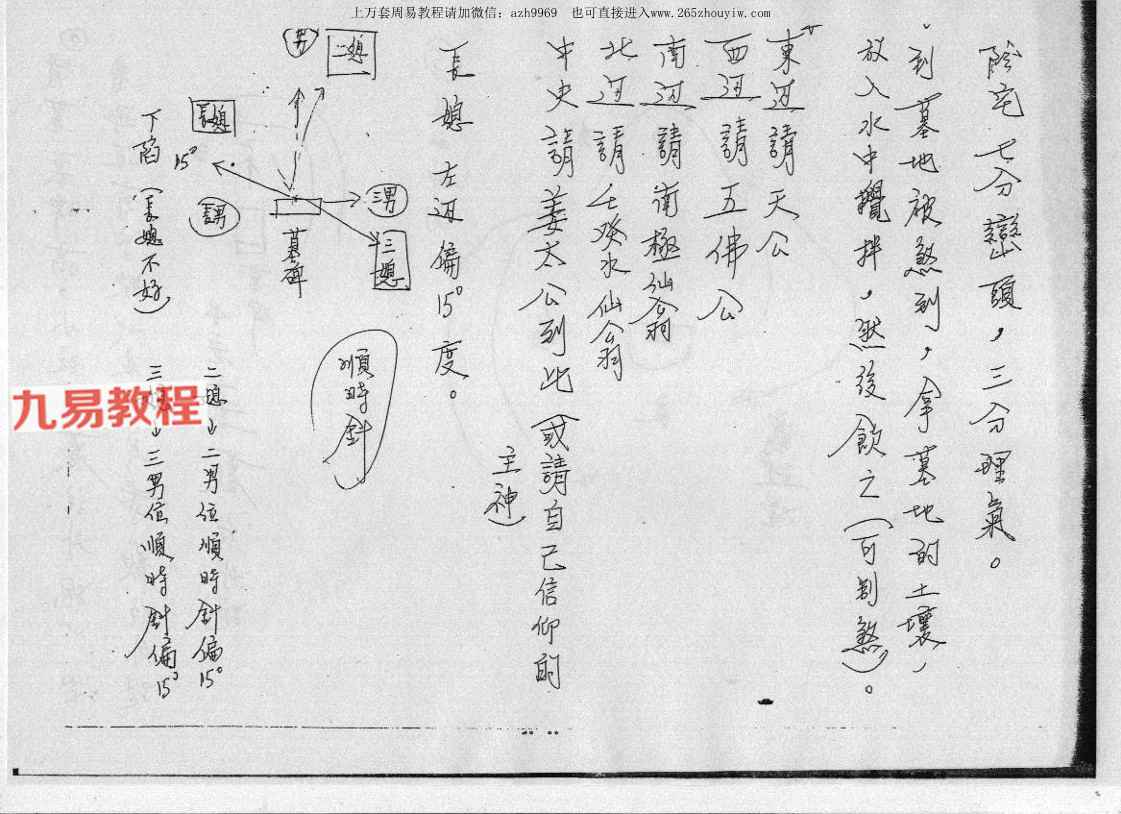 上万套周易教程请加微信：azh9969 也可直接进入www.265zhouyiw.com
陰宅七分巒頭，三分理氣。
到墓地被煞到，拿墓地的土壤，
放入水中攪拌，然後飲之（可制煞）。
東边請天公
西边請五佛公
南边請南極仙翁
北边請壬癸水仙翁
中央請姜太公到此或請自己信仰的
主神）
長媳左边偏15°度。
順時針
二媳
男
三男
三媳
墓碑
長媳
15°
長男
下陷（長媳不好）
二媳→二男位順時針偏15°
三媳→三男位順時針偏15°
九易教程